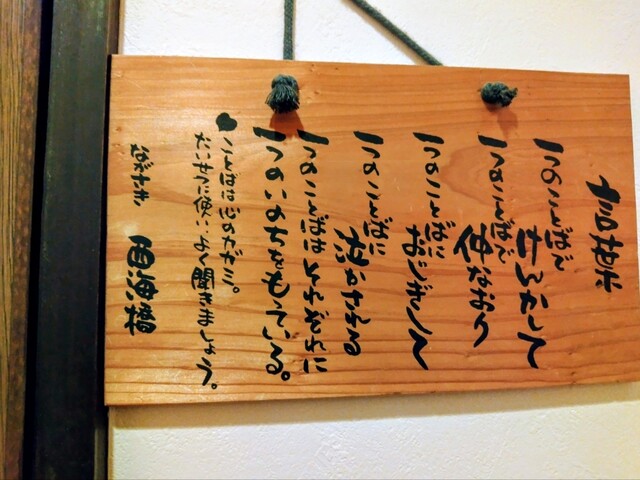 言葉
一つのことばで けんかして
一つのことばで 仲なおり
一つのことばに おじぎして
一つのことばに 泣かされる
一つのことばはそれぞれに
一つのいのちをもっている。
ことばは心のカガミ。
たいせつに使い よく聞きましょう。
ながさき 西海橋